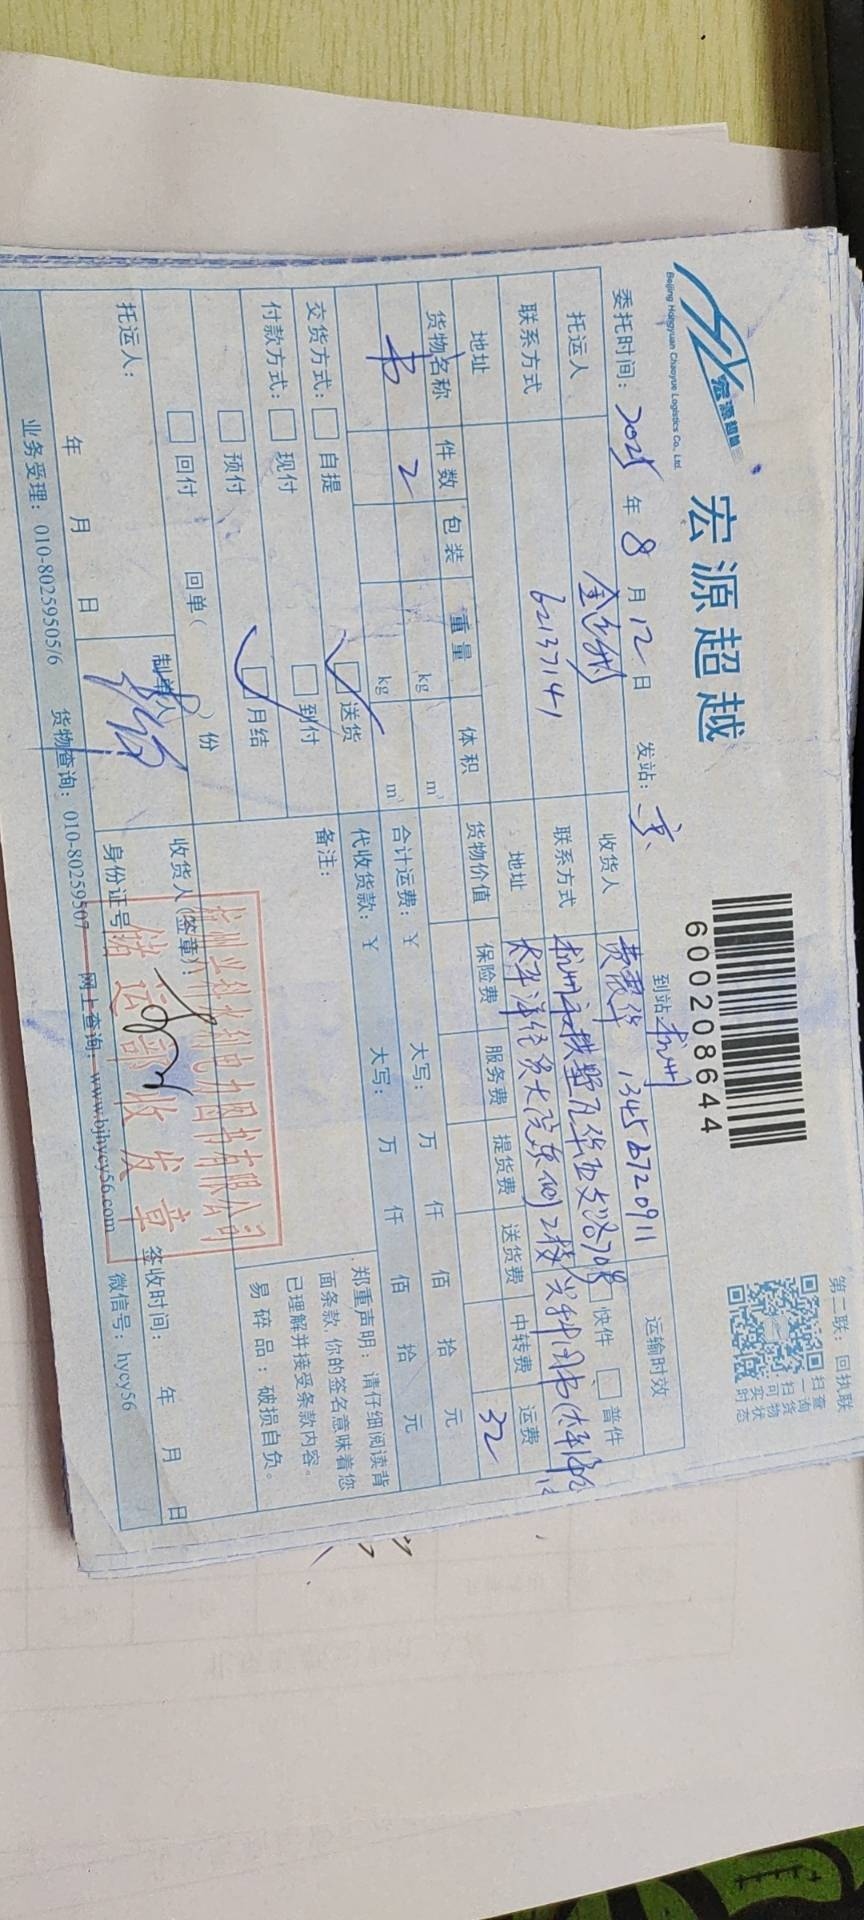 宏源超越
Beijing Hongyuan Chaoyue Logistics Co., Ltd.
宏源超越
600208644
第二联：回执联
扫查
一询
扫货
可物
实状
时态
委托时间：2025年8月12日 发站：京 到站：杭州 运输时效
托运人 收货人 费聚华 13456720911 快件 普件
联系方式 62137141 联系方式
地址 地址
杭州市拱墅区华西支路708
太平洋经贸大院东侧2楼
货物名称 件数 包装 重量 体积 货物价值 保险费 服务费 提货费 送货费 中转费 运费
书 2 kg m³ 32
kg m³ 合计运费：¥ 大写： 万 仟 佰 拾 元
交货方式： 自提 送货 代收货款：¥ 大写： 万 仟 佰 拾 元
付款方式： 现付 到付 备注：
预付 月结
回付 回单（ ）份
郑重声明：请仔细阅读背
面条款，你的签名意味着您
已理解并接受条款内容。
易碎品：破损自负。
托运人： 制单人 收货人（签章）：
年 月 日 身份证号： 签收时间： 年 月 日
杭州兴科水利电力图书有限公司
储运部收发章
业务受理：010-80259505/6 货物查询：010-80259507 网上查询：www.bjhycy56.com 微信号：hycy56